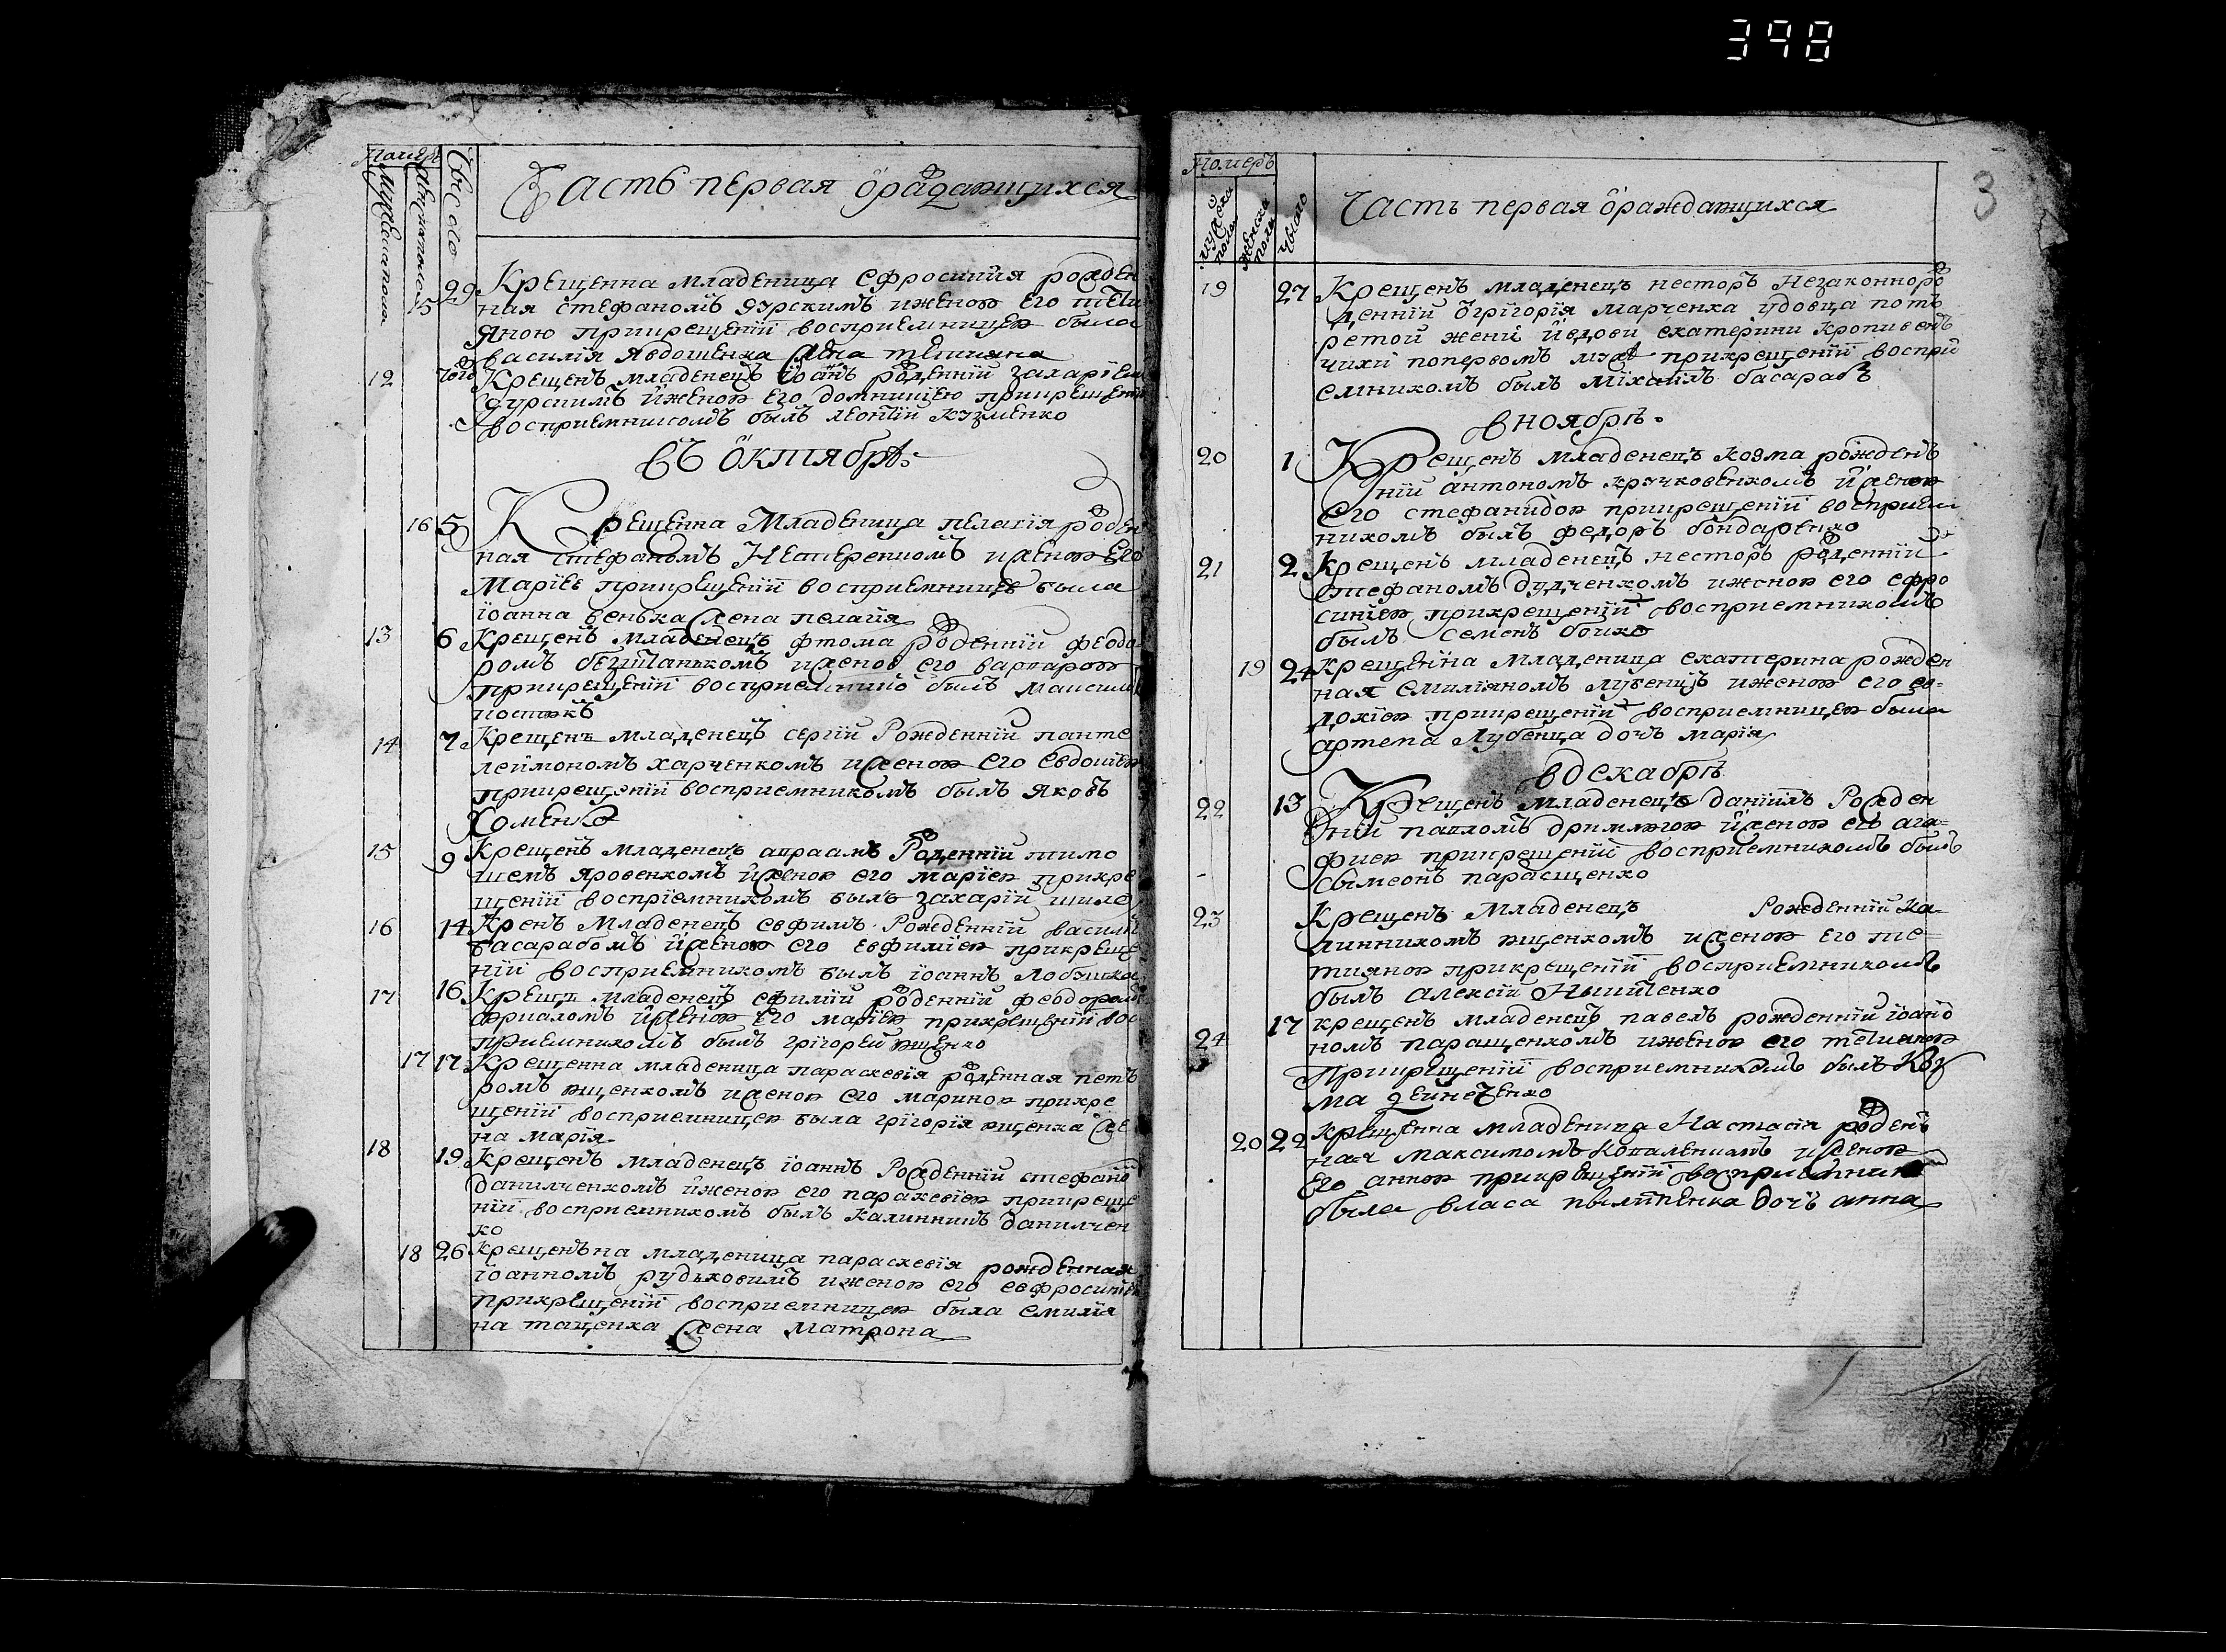 398
Номеръ
Мужеска пола
Число
Часть первая ő раждающихся
15 29 Крещенна младеница Ефросинїя рожден
ная стефаномъ Яурскимъ иженою его
яною прикрещенїи восприемницею была
василїя Явдошенка жена
12 Крещенъ младенецъ Іоаннъ рожденнїй захарїем
иженою его домникїею прикрещенїи
восприемникомъ былъ леонтїй кузменко
въ őктябрѣ
16 5 Крещенна Младеница пелагїя рожден
ная стефаномъ Нестеренкомъ иженою его
Марїею прикрещенїи восприемницею была
іоанна жена пелагїя
13 6 Крещенъ младенецъ фтома рожденнїй феодо
ромъ иженою его варварою
прикрещенїи восприемнико былъ максимъ
14 7 Крещенъ младенецъ сергїй Рожденнїй панте
леймономъ харченкомъ иженою его Евдокїею
прикрещенїи восприемникомъ былъ яковъ
Хоменко
15 9 Крещенъ младенецъ авраамъ Рожденнїй тимо
шемъ яровенкомъ иженою его марїею прикре
щенїи воспрїемникомъ былъ захарїй шило
16 14 Младенецъ евфимъ Рожденнїй васил
басарабомъ иженою его евфимїею прикреще
нїи восприемникомъ былъ іоаннъ
17 16 младенецъ рожденнїй феодоромъ
иженою его марїею прикрещенїи вос
приемникомъ былъ грїгорей ющенко
17 17 Крещенна младеница параскевїя рожденная петъ
ромъ ющенкомъ иженою его мариною прикре
щенїи восприемницею была грїгорїя ющенка же
на марїя
18 19 Крещенъ младенецъ іоаннъ Рожденнїй стефано
данилченкомъ иженою его параскевїею прикреще
нїи восприемникомъ былъ калинникъ данилчен
ко
18 26 Крещенъна младеница параскевїя рожденная
іоанномъ рудьковимъ иженою его евфросинїею
прикрещенїи восприемницею была емилїя
на таценка жена Матрона
3
Номеръ
мужеска пола
женска пола
Число
Часть первая ő раждающихся
19 27 Крещенъ младенецъ несторъ Незаконноро
жденнїй őгрїгорїя марченка удовца потъ
ретой женї иедови екатерини кропивен
чихи попервомъ мужѣ прикрещенїи воспри
емникомъ былъ михаилъ басарабъ
вноябрѣ
20 1 Крещенъ младенецъ козма рожденъ
нїй антономъ крячковенкомъ иженою
его стефанидою прикрещенїи восприем
никомъ былъ федоръ бондаренко
21 2 Крещенъ младенецъ несторъ рожденнїй
стефаномъ дудченкомъ иженою его ефро
синїею прикрещенїи восприемникомъ
былъ семенъ бойко
19 24 Крещенъна младеница екатерина рожден
ная Емилїяномъ лубенцъ иженою его ев=
докїею прикрещенїи восприемницею была
артема Лубенца дочъ марїя
вдекабрѣ
22 13 Крещенъ младенецъ данїилъ Рожден
нїй павломъ иженою его ага=
фиею прикрещенїи восприемникомъ былъ
сымеонъ паращенко
23 Крещенъ Младенецъ Рожденнїй ка=
линникомъ ющенкомъ иженою его те=
тияною прикрещенїи восприемникомъ
былъ алексїй
24 17 крещенъ младенецъ павелъ рожденнїй іоано
номъ паращенкомъ иженою его
Прикрещенїи восприемникомъ былъ Коз
ма
20 22 Крещенна младеница Настасїя рожден
ная Максимомъ иженою
его анною прикрещенїи восприемницею
была власа дочъ анна